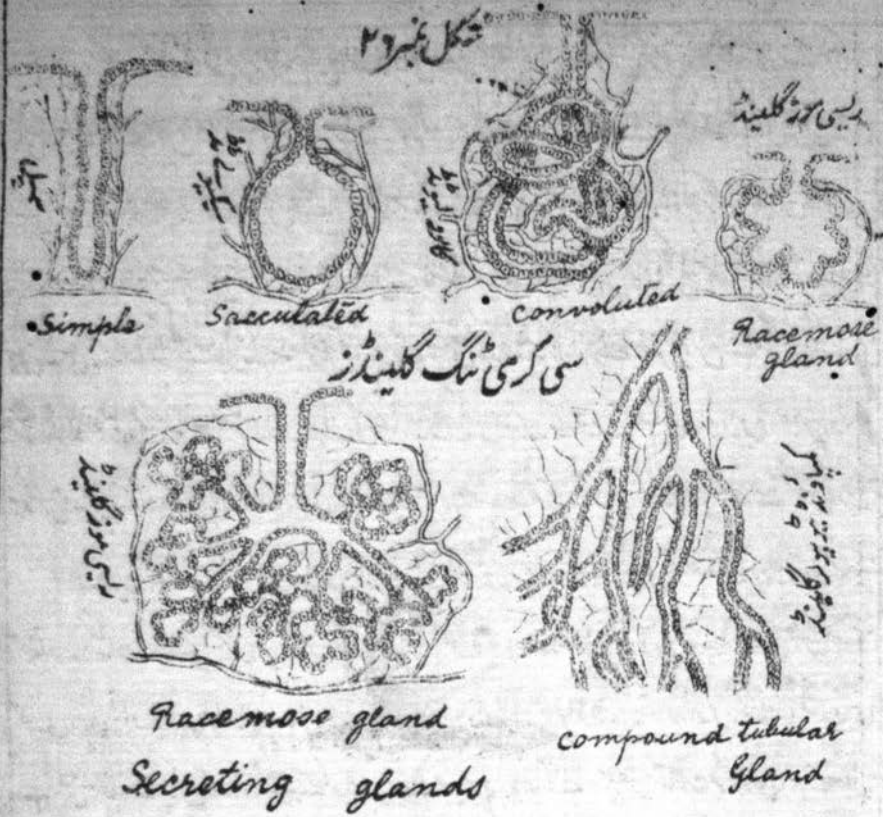 شکل نمبر ۲۶
ریسی موز گلینڈ
Simple
Sacculated
Convoluted
Racemose
gland
سی کری ٹنگ گلینڈز
ریسی موز گلینڈ
کمپاونڈ ٹیوبیولر گلینڈ
Racemose gland
compound tubular
Gland
Secreting glands